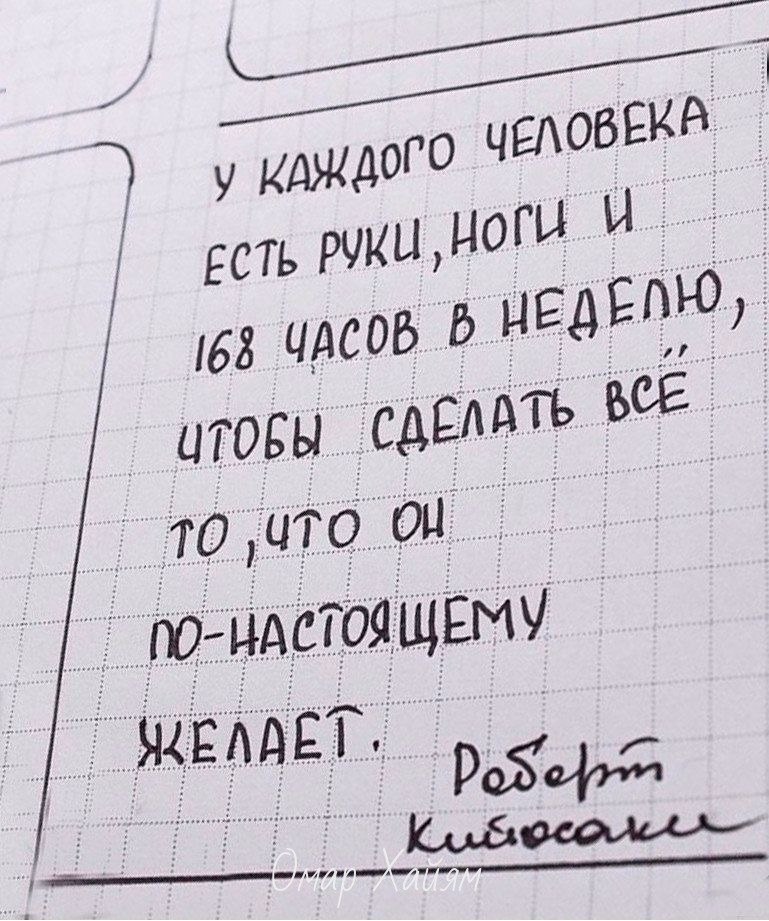 У КАЖДОГО ЧЕЛОВЕКА
ЕСТЬ РУКИ, НОГИ И
168 ЧАСОВ В НЕДЕЛЮ,
ЧТОБЫ СДЕЛАТЬ ВСЁ
ТО, ЧТО ОН
ПО-НАСТОЯЩЕМУ
ЖЕЛАЕТ.
Роберт
Кийосаки
Омар Хайям